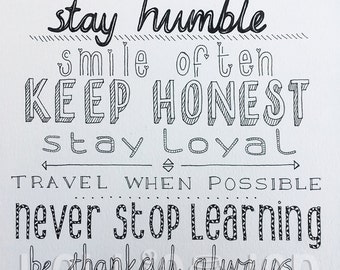 stay humble
smile often
KEEP HONEST
stay Loyal
TRAVEL WHEN POSSIBLE
never Stop Learning
be thankful always